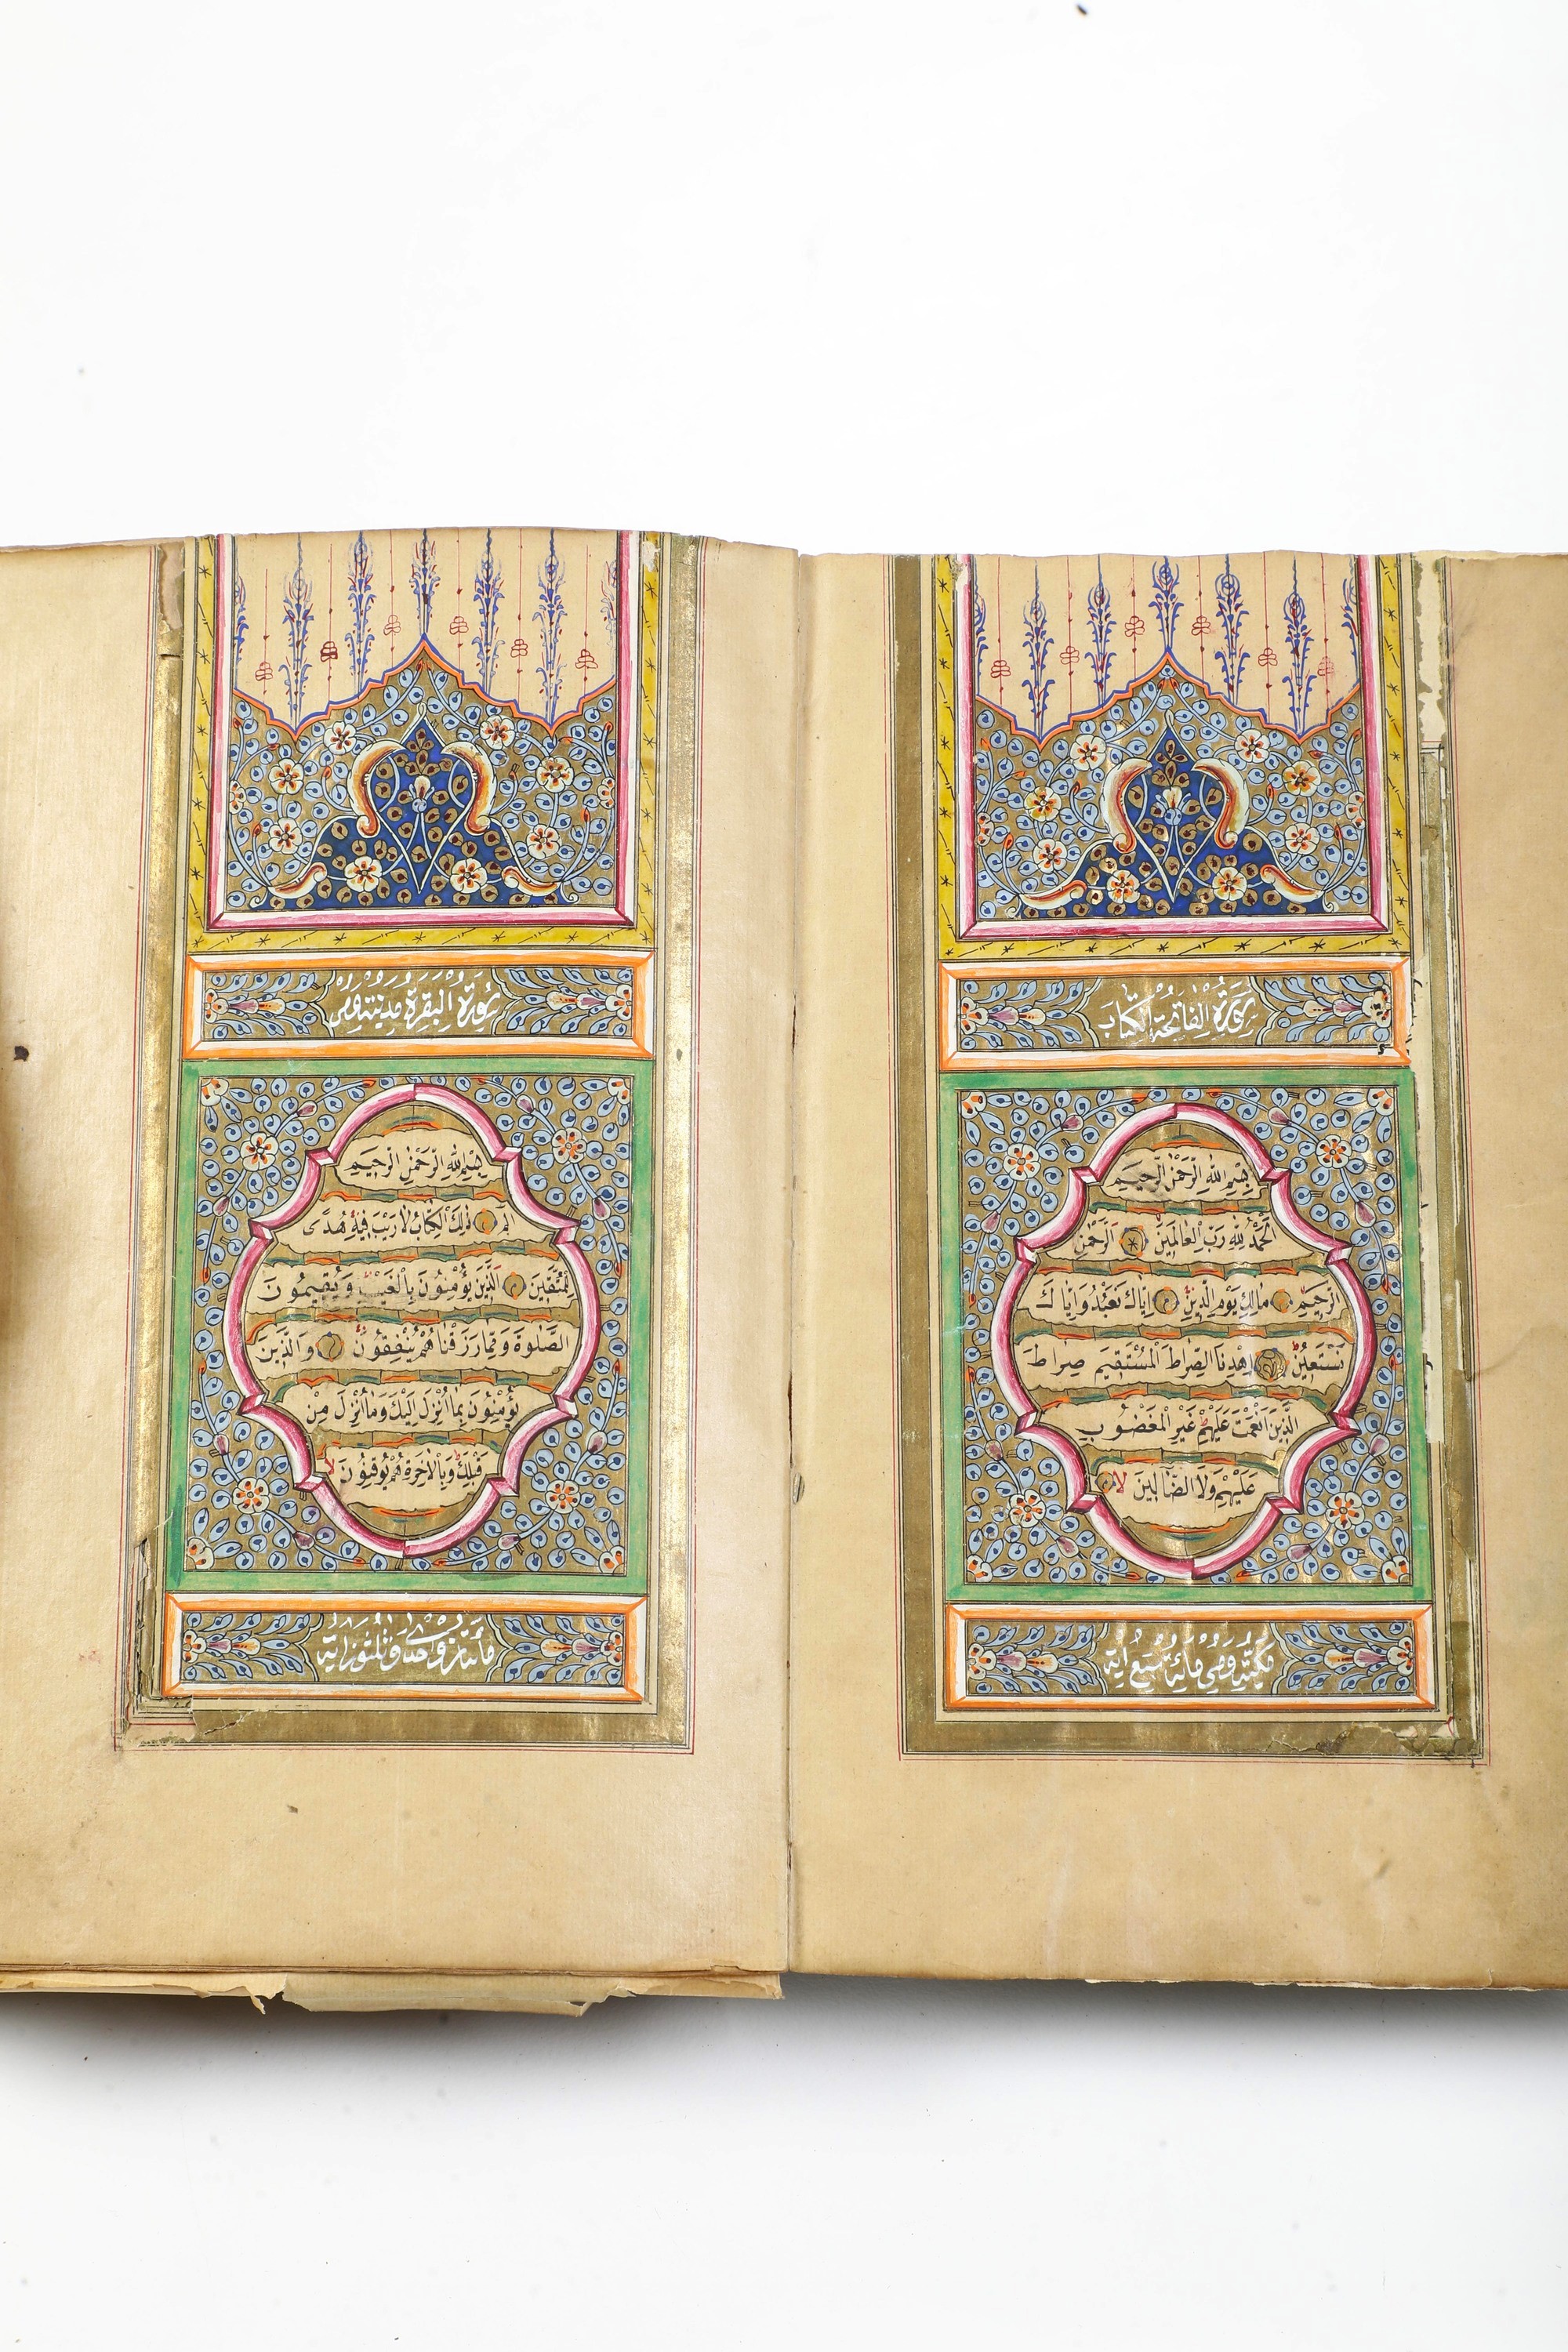 سُورَةُ الفَاتِحَةِ الْكِتَابَ
بِسْمِ اللّٰهِ الرَّحْمٰنِ الرَّحِيمِ
اَلْحَمْدُ لِلّٰهِ رَبِّ الْعَالَمِينَ اَلرَّحْمٰنِ
الرَّحِيمِ مَالِكِ يَوْمِ الدِّينِ اِيَّاكَ نَعْبُدُ وَاِيَّاكَ
نَسْتَعِينُ اِهْدِنَا الصِّرَاطَ الْمُسْتَقِيمَ صِرَاطَ
الَّذِينَ اَنْعَمْتَ عَلَيْهِمْ غَيْرِ الْمَغْضُوبِ
عَلَيْهِمْ وَلَا الضَّالِّينَ لا
مَكِّيَّة وَهِيَ سَبْعُ اٰيَة
سُورَةُ الْبَقَرَةِ مَدَنِيَّة وَهِيَ
بِسْمِ اللّٰهِ الرَّحْمٰنِ الرَّحِيمِ
الٓمٓ ذٰلِكَ الْكِتَابُ لَا رَيْبَ فِيهِ هُدًى
لِلْمُتَّقِينَ اَلَّذِينَ يُؤْمِنُونَ بِالْغَيْبِ وَيُقِيمُونَ
الصَّلٰوةَ وَمِمَّا رَزَقْنَاهُمْ يُنْفِقُونَ وَالَّذِينَ
يُؤْمِنُونَ بِمَا اُنْزِلَ اِلَيْكَ وَمَا اُنْزِلَ مِنْ
قَبْلِكَ وَبِالْاٰخِرَةِ هُمْ يُوقِنُونَ لا
اٰية